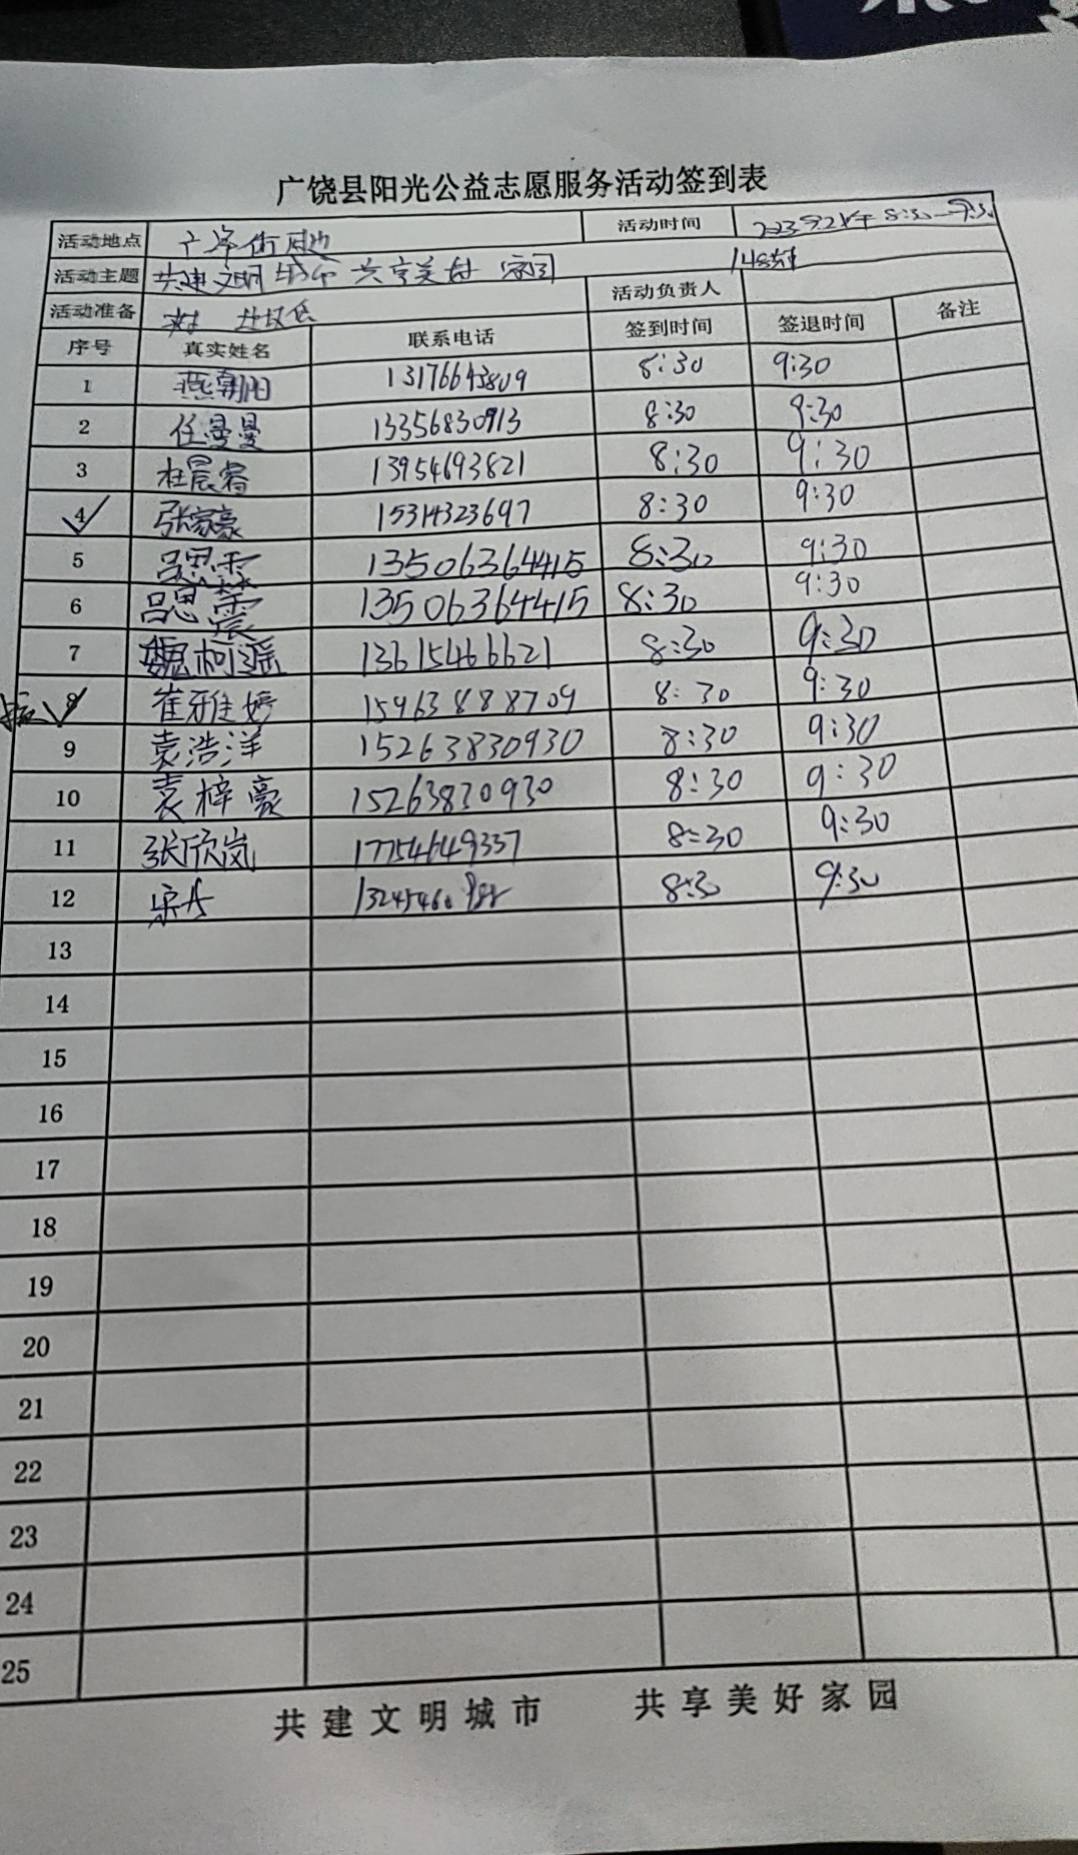 广饶县阳光公益志愿服务活动签到表
活动地点 街周边 活动时间 8:30—9:30
活动主题 共建文明城市 共享美好家园 1小时
活动准备 活动负责人
序号 真实姓名 联系电话 签到时间 签退时间 备注
1 燕朝阳 13176643809 8:30 9:30
2 任曼曼 13356830913 8:30 9:30
3 杜晨睿 13954693821 8:30 9:30
4 张家豪 15314323697 8:30 9:30
5 吕思霖 13506364415 8:30 9:30
6 吕思震 13506364415 8:30 9:30
7 魏柯瑶 13615466621 8:30 9:30
8 崔雅婷 159638888709 8:30 9:30
9 袁浩洋 15263830930 8:30 9:30
10 袁梓豪 15263830930 8:30 9:30
11 张欣岚 17754649337 8:30 9:30
12 8:30 9:30
13
14
15
16
17
18
19
20
21
22
23
24
25
共建文明城市 共享美好家园